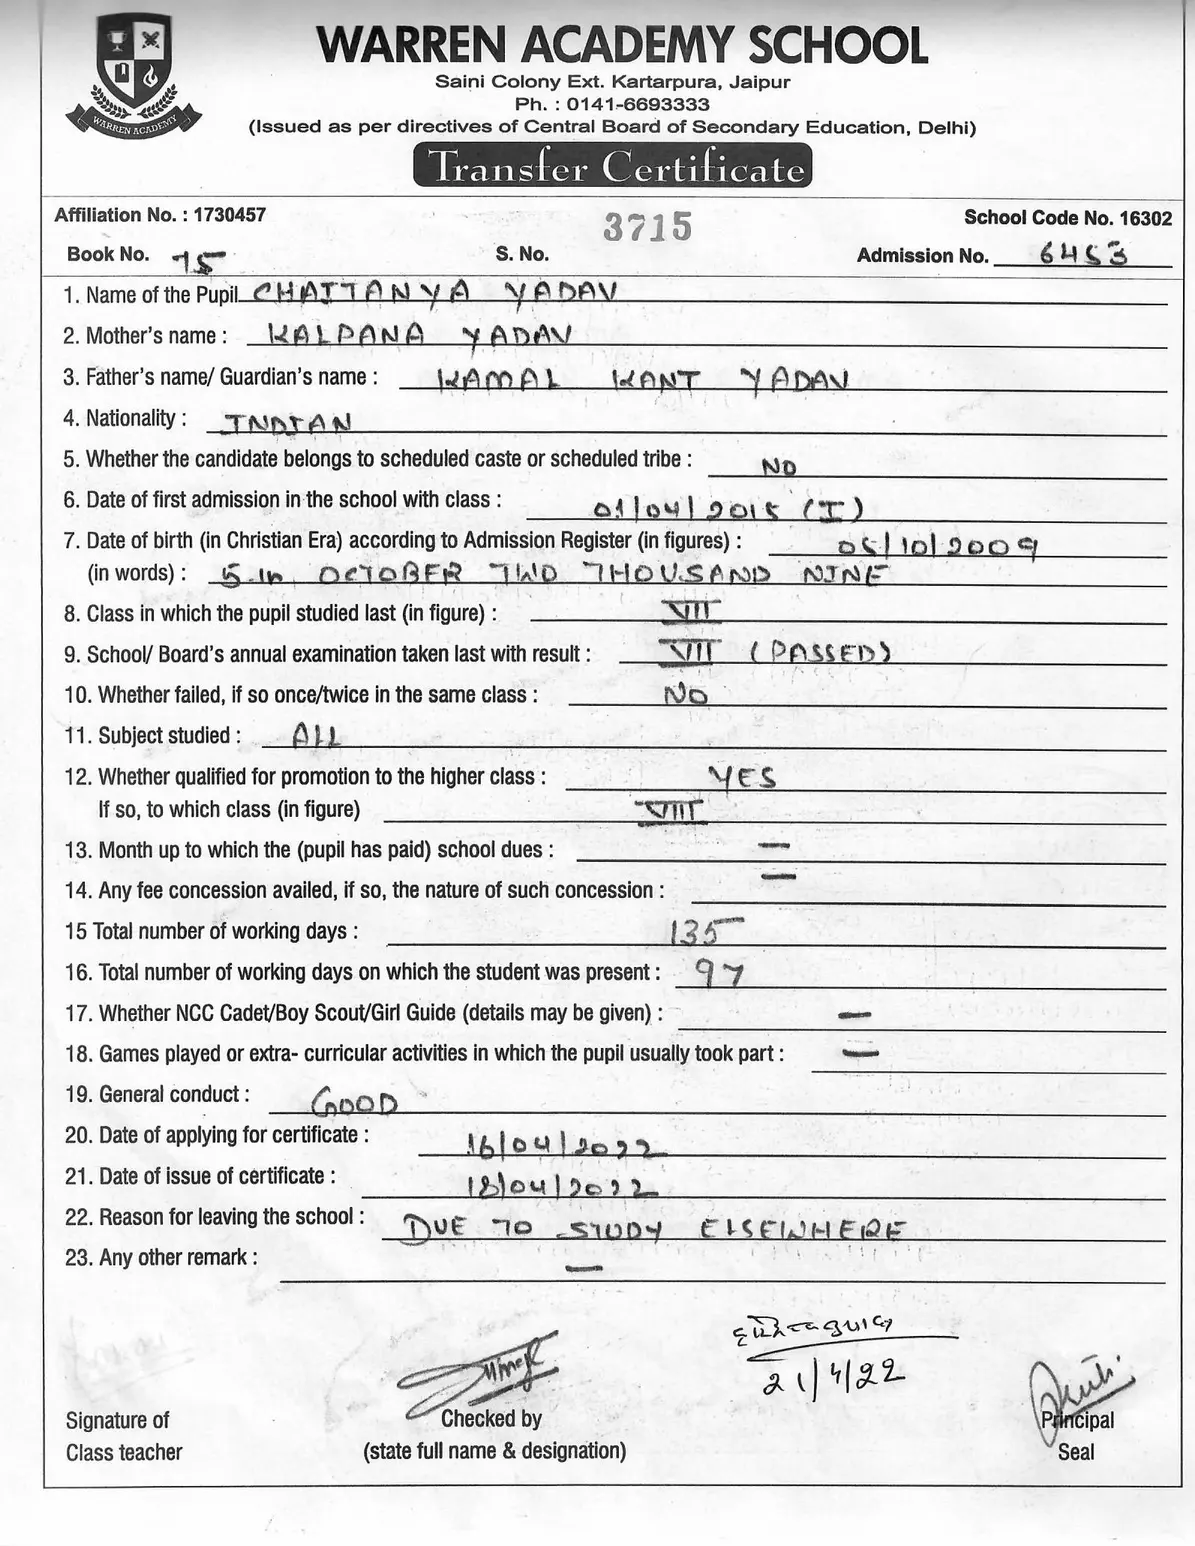 WARREN ACADEMY
WARREN ACADEMY SCHOOL
Saini Colony Ext. Kartarpura, Jaipur
Ph. : 0141-6693333
(Issued as per directives of Central Board of Secondary Education, Delhi)
Transfer Certificate
Affiliation No. : 1730457 3715 School Code No. 16302
Book No. 75 S. No. Admission No. 6453
1. Name of the Pupil CHAITANYA YADAV
2. Mother's name : KALPANA YADAV
3. Father's name/ Guardian's name : KAMAL KANT YADAV
4. Nationality : INDIAN
5. Whether the candidate belongs to scheduled caste or scheduled tribe : NO
6. Date of first admission in the school with class : 01/04/2015 (I)
7. Date of birth (in Christian Era) according to Admission Register (in figures) : 05/10/2009
(in words) : 5 OCTOBER TWO THOUSAND NINE
8. Class in which the pupil studied last (in figure) : VII
9. School/ Board's annual examination taken last with result : VII (PASSED)
10. Whether failed, if so once/twice in the same class : NO
11. Subject studied : ALL
12. Whether qualified for promotion to the higher class : YES
If so, to which class (in figure) VIII
13. Month up to which the (pupil has paid) school dues : —
14. Any fee concession availed, if so, the nature of such concession : —
15 Total number of working days : 135
16. Total number of working days on which the student was present : 97
17. Whether NCC Cadet/Boy Scout/Girl Guide (details may be given) : —
18. Games played or extra- curricular activities in which the pupil usually took part : —
19. General conduct : GOOD
20. Date of applying for certificate : 16/04/2022
21. Date of issue of certificate : 18/04/2022
22. Reason for leaving the school : DUE TO STUDY ELSEWHERE
23. Any other remark : —
21/4/22
Signature of Checked by Principal
Class teacher (state full name & designation) Seal